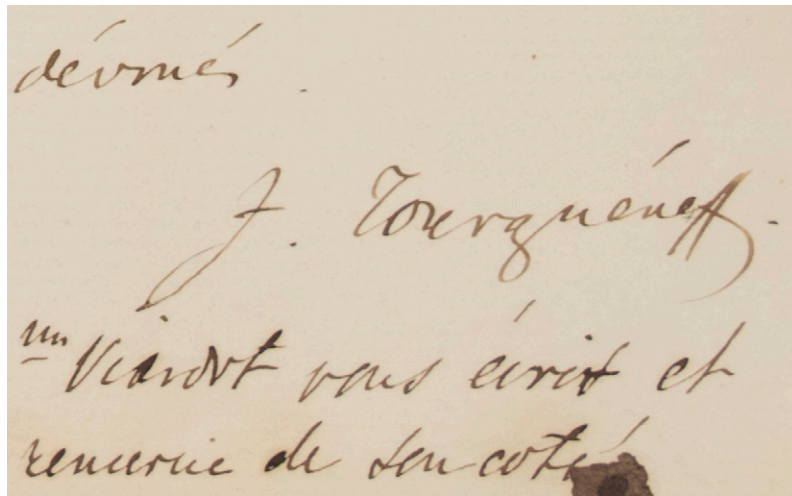 dévoués.
J. Tourguéneff.
Mme Viardot vous écrit et
remercie de son coté